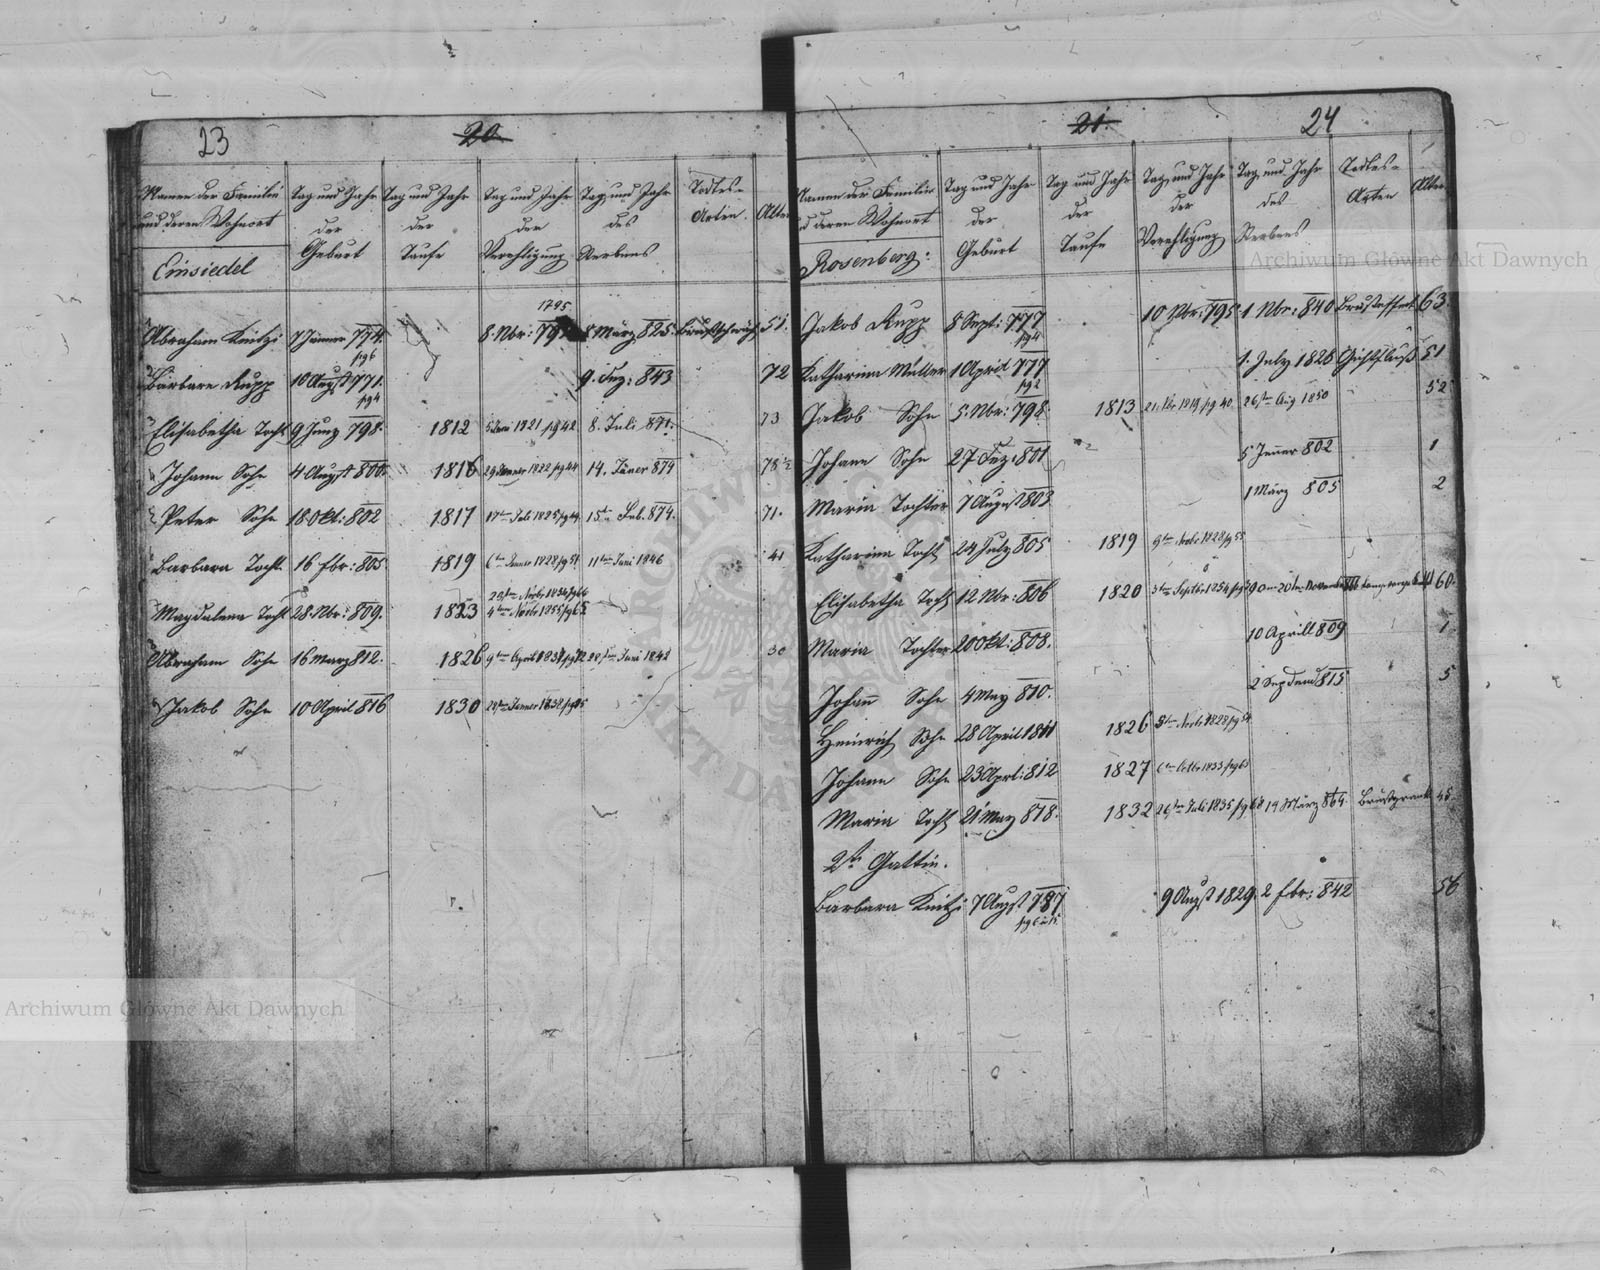 23
20
Namen der Familie
und deren Wohnort
Einsiedel
Tag und Jahr
der
Geburt
Tag und Jahr
der
Taufe
Tag und Jahr
der
Verehligung
Tag und Jahr
des
Sterbens
Todtes-
Arten.
Alter
Abraham Kintzi 7 Jänner 774. 8. Nbr: 1795 8 März 825. 51.
pg 6
Barbara Rupp 10 Augst 771. 9. Dez: 843 72
pg 4
Elisabetha Tocht 9 Juny 798. 1812 1821 pg 42 8. Juli 871. 73
Johann Sohn 4 Augst 800. 1816 29 Jenner 1822 pg 44 14. Jäner 879 78 ½
Peter Sohn 18 Okt: 802 1817 17ten Juli 1825 pg 49 15tn Feb. 874. 71.
Barbara Tocht 16 Fbr: 805 1819 6ten Jenner 1828 pg 51 11ten Juni 1846 41
23ten Novbr 1834 pg 66
Magdalena Tocht 28 Nbr: 809. 1823 4ten Novbr 1855 pg
Abraham Sohn 16 Marz 812. 1826 9ten April 1837 pg 72 28ten Juni 1842 30
Jakob Sohn 10 April 816 1830 Jenner 1838 pg
21.
24
Namen der Familie
und deren Wohnort
Rosenberg:
Tag und Jahr
der
Geburt
Tag und Jahr
der
Taufe
Tag und Jahr
der
Verehligung
Tag und Jahr
des
Sterbens
Todtes-
Arten
Alter
Jakob Rupp 8 Sept: 777 10 Nbr: 795 1 Nbr: 840 63
pg 4
Katharina Müller 1 April 777 1. July 1828 51
pg 2
Jakob Sohn 5. Nbr: 798. 1813 21 1819 pg 40 26ten Aug 1850 52
Johann Sohn 27 Dez: 801 5 Jenner 802 1
Maria Tochter 7 August 803 1 März 805 2
Katharina Tocht 24 July 805 1819 9ten Novbr 1828 pg 55
Elisabetha Tocht 12 Nbr: 806 1820 3ten Septbr 1834 pg 20ten November 60.
Maria Tochter 20 Okt: 808. 10 Aprill 809 1
Johan̄ Sohn 4 May 810. 2 Septem 815 5
Heinrich Sohn 28 April 1811 1826 Novbr 1828 pg 54
Johann Sohn 23 Aprl: 812 1827 6ten Octbr 1833 pg 63
Maria Tocht 21 May 818. 1832 26ten Juli 1835 pg 68 19 März 864. 45.
2te Gattin.
Barbara Kintzi 7 Augst 787 9 Augst 1829. 2 Fbr: 842 56
Archiwum Główne Akt Dawnych
Archiwum Główne Akt Dawnych